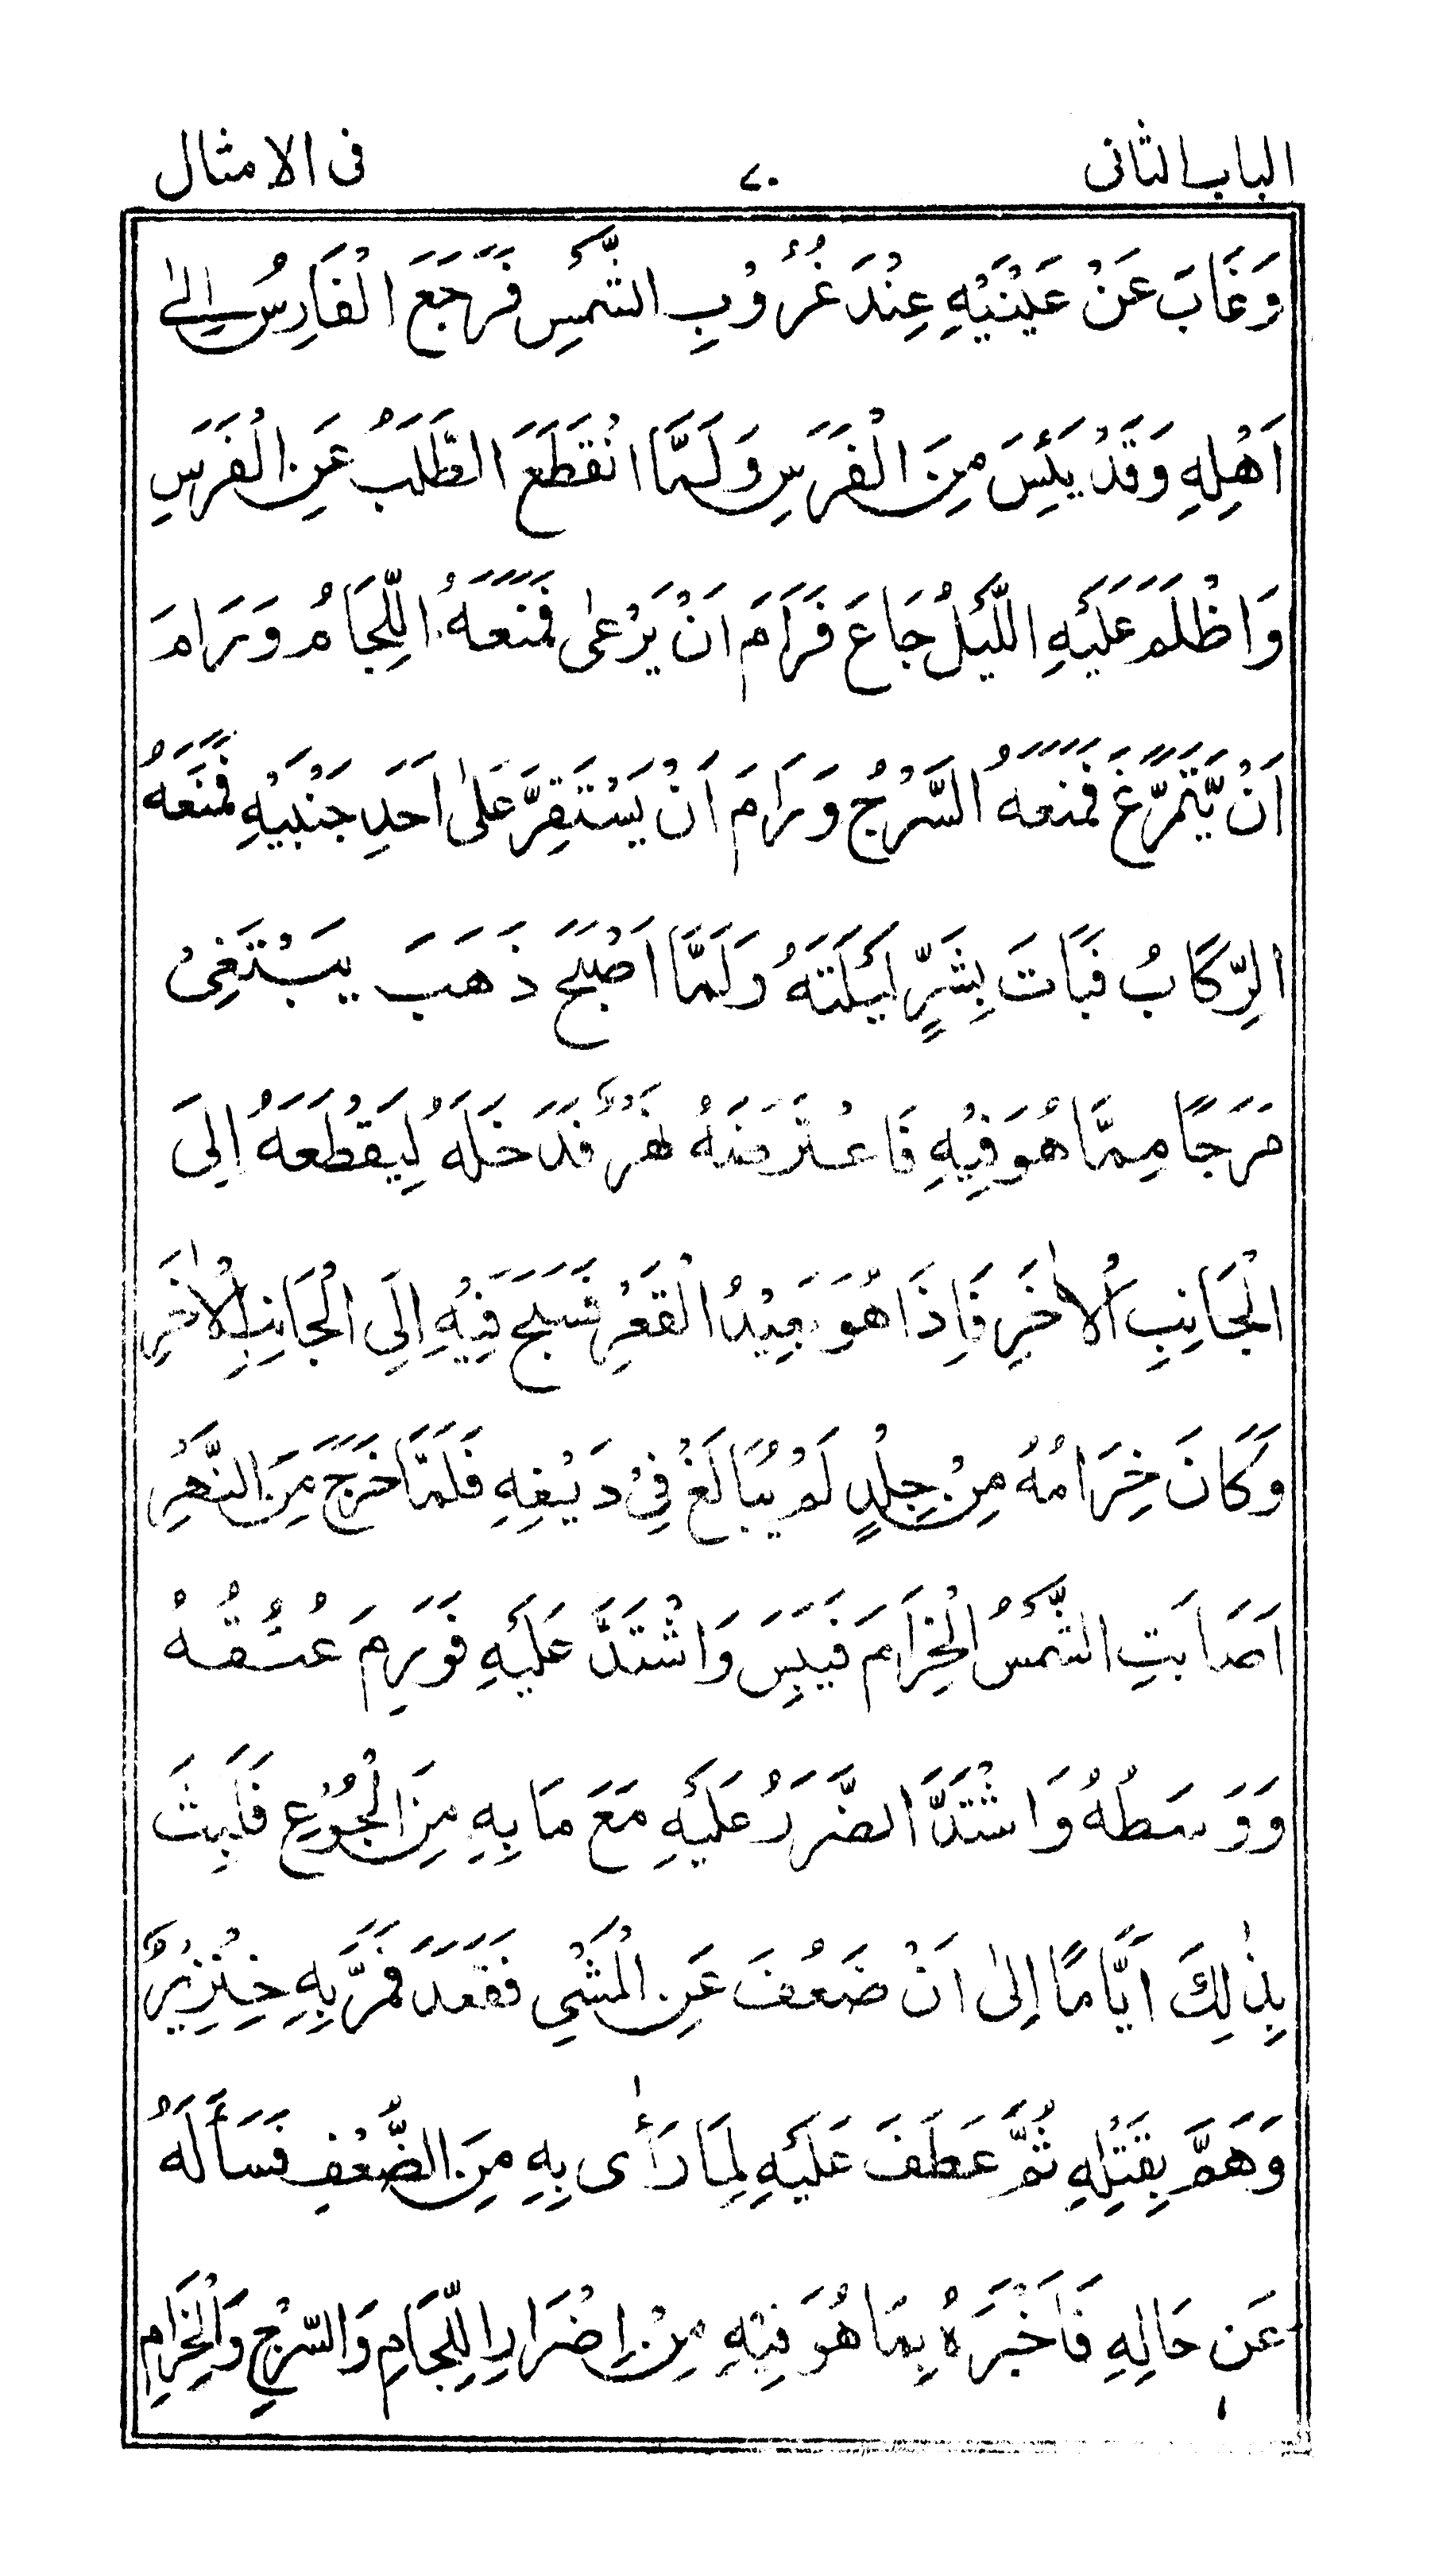 الباب الثانى ٧٠ فى الامثال
وَغَابَ عَنْ عَيْنَيْهِ عِنْدَ غُرُوْبِ الشَّمْسِ فَرَجَعَ الْفَارِسُ اِلىٰ
اَهْلِهٖ وَقَدْ يَئِسَ مِنَ الْفَرَسِ وَلَمَّا انْقَطَعَ الطَّلَبُ عَنِ الْفَرَسِ
وَاَظْلَمَ عَلَيْهِ اللَّيْلُ جَاعَ فَرَامَ اَنْ يَرْعىٰ فَمَنَعَهُ اللِّجَامُ وَرَامَ
اَنْ يَّتَمَرَّغَ فَمَنَعَهُ السَّرْجُ وَرَامَ اَنْ يَسْتَقِرَّ عَلىٰ اَحَدِ جَنْبَيْهِ فَمَنَعَهُ
الرِّكَابُ فَبَاتَ بِشَرِّ لَيْلَتَهُ وَلَمَّا اَصْبَحَ ذَهَبَ يَبْتَغِىْ
فَرَجًا مِمَّا هُوَ فِيْهِ فَاعْتَرَضَهُ نَهَرٌ فَدَخَلَهُ لِيَقْطَعَهُ اِلَى
الْجَانِبِ الْاٰخَرِ فَاِذَا هُوَ بَعِيْدُ الْقَعْرِ فَسَبَحَ فِيْهِ اِلَى الْجَانِبِ الْاٰخَرِ
وَكَانَ حِزَامُهُ مِنْ جِلْدٍ لَمْ يُبَالَغْ فِىْ دَبْغِهِ فَلَمَّا خَرَجَ مِنَ النَّهَرِ
اَصَابَتِ الشَّمْسُ الْحِزَامَ فَيَبِسَ وَاشْتَدَّ عَلَيْهِ فَوَرِمَ عُنُقُهُ
وَوَسَطُهُ وَاشْتَدَّ الضَّرَرُ عَلَيْهِ مَعَ مَا بِهِ مِنَ الْجُوْعِ فَلَبِثَ
بِذٰلِكَ اَيَّامًا اِلىٰ اَنْ ضَعُفَ عَنِ الْمَشْىِ فَقَعَدَ فَمَرَّ بِهِ خِنْزِيْرٌ
وَهَمَّ بِقَتْلِهِ ثُمَّ عَطَفَ عَلَيْهِ لِمَا رَأٰى بِهِ مِنَ الضُّعْفِ فَسَأَلَهُ
عَنْ حَالِهِ فَاَخْبَرَهُ بِمَا هُوَ فِيْهِ مِنْ اِضْرَارِ اللِّجَامِ وَالسَّرْجِ وَالْحِزَامِ